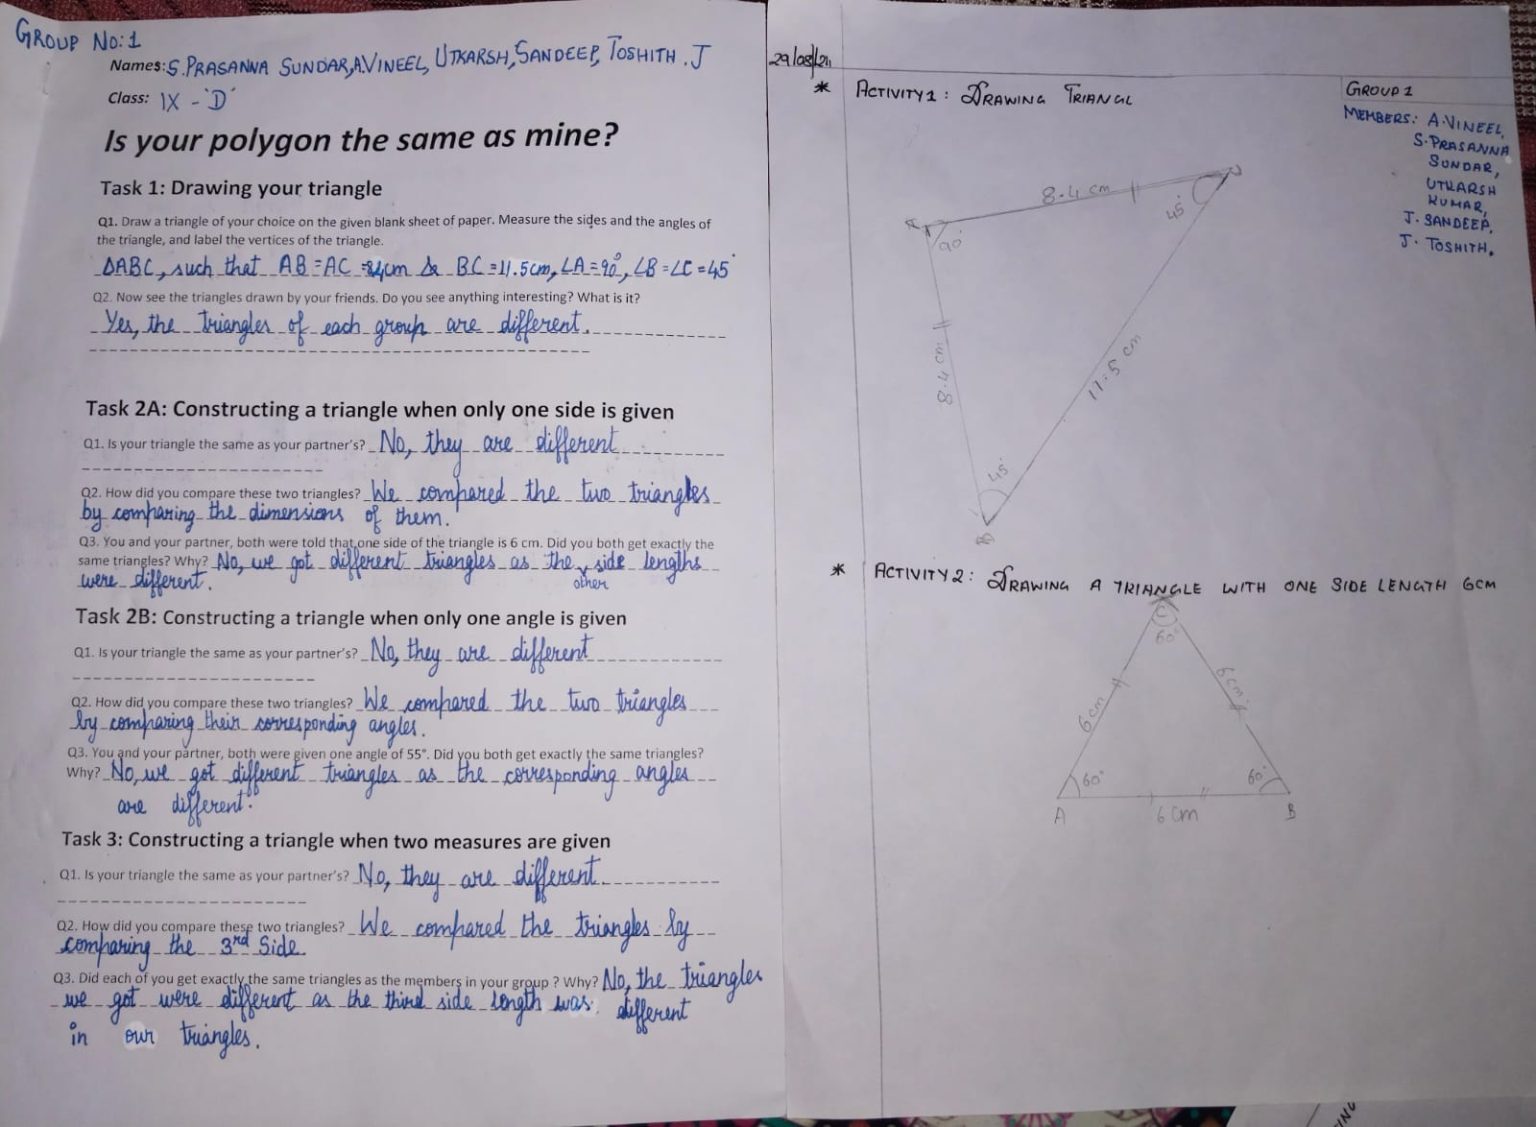 GROUP NO:1
Names: S.PRASANNA SUNDAR, A.VINEEL, UTKARSH, SANDEEP, TOSHITH.J
Class: IX - 'D'
Is your polygon the same as mine?
Task 1: Drawing your triangle
Q1. Draw a triangle of your choice on the given blank sheet of paper. Measure the sides and the angles of
the triangle, and label the vertices of the triangle.
ΔABC, such that AB=AC=8.4cm & BC=11.5cm, ∠A=90°, ∠B=∠C=45°
Q2. Now see the triangles drawn by your friends. Do you see anything interesting? What is it?
Yes, the triangles of each group are different.
Task 2A: Constructing a triangle when only one side is given
Q1. Is your triangle the same as your partner's? No, they are different
Q2. How did you compare these two triangles? We compared the two triangles
by comparing the dimensions of them.
Q3. You and your partner, both were told that one side of the triangle is 6 cm. Did you both get exactly the
same triangles? Why? No, we got different triangles as the other side lengths
were different.
Task 2B: Constructing a triangle when only one angle is given
Q1. Is your triangle the same as your partner's? No, they are different
Q2. How did you compare these two triangles? We compared the two triangles
by comparing their corresponding angles.
Q3. You and your partner, both were given one angle of 55°. Did you both get exactly the same triangles?
Why? No, we got different triangles as the corresponding angles
are different.
Task 3: Constructing a triangle when two measures are given
Q1. Is your triangle the same as your partner's? No, they are different.
Q2. How did you compare these two triangles? We compared the triangles by
comparing the 3rd Side.
Q3. Did each of you get exactly the same triangles as the members in your group ? Why? No, the triangles
we got were different as the third side length was different
in our triangles.
29/08/21
* ACTIVITY 1: DRAWING TRIANGL
GROUP 1
MEMBERS: A.VINEEL,
S.PRASANNA
SUNDAR,
UTKARSH
KUMAR,
J.SANDEEP,
J.TOSHITH,
8.4 cm
45°
A
90°
8.4 cm
11.5 cm
45°
B
* ACTIVITY 2: DRAWING A TRIANGLE WITH ONE SIDE LENGTH 6CM
C
60°
6cm
6cm
60°
60°
A
6 cm
B